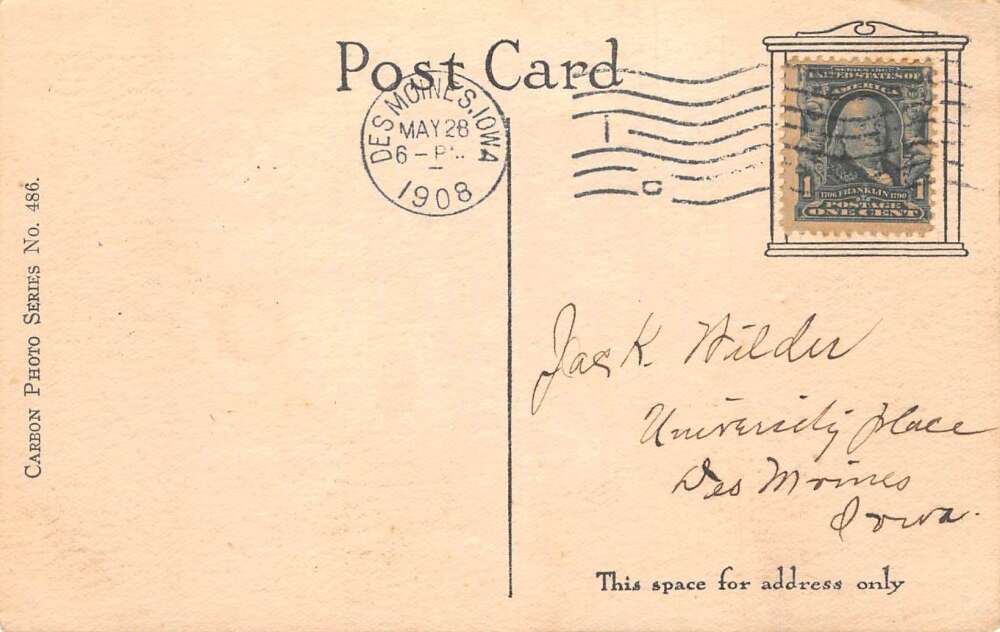 Post Card
DES MOINES, IOWA
MAY 28
6 - P
1908
SERIES 1902
UNITED STATES OF
AMERICA
1 1
1706 FRANKLIN 1790
POSTAGE
ONE CENT
CARBON PHOTO SERIES No. 486.
Jack Wilder
University place
Des Moines
Iowa.
This space for address only